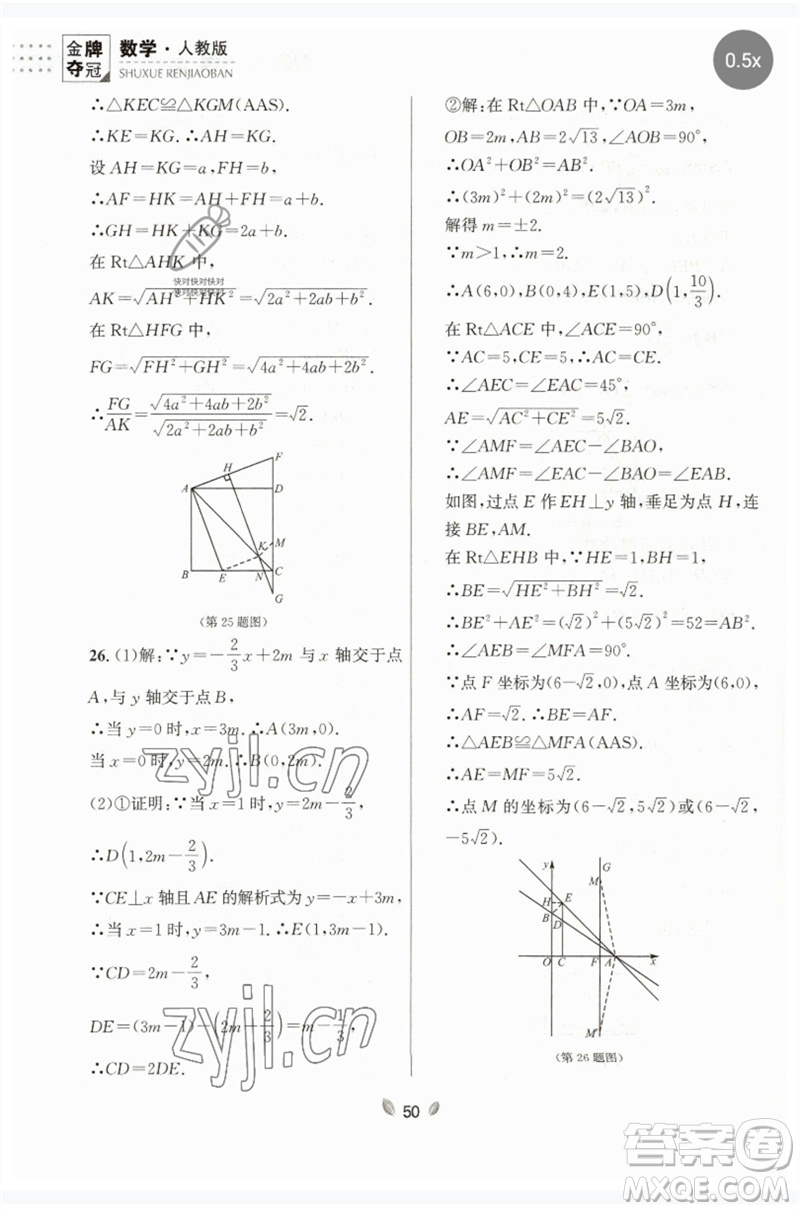 金牌
夺冠
数学·人教版
SHUXUE RENJIAOBAN
0.5x
∴△KEC≌△KGM(AAS).
∴KE=KG. ∴AH=KG.
设 AH=KG=a, FH=b,
∴AF=HK=AH+FH=a+b.
∴GH=HK+KG=2a+b.
在 Rt△AHK 中,
快对快对快对
快对快对快对
AK=√(AH²+HK²)=√(2a²+2ab+b²).
在 Rt△HFG 中,
FG=√(FH²+GH²)=√(4a²+4ab+2b²).
∴FG/AK=√(4a²+4ab+2b²)/√(2a²+2ab+b²)=√2.
F
H
A
D
M
K
B
E
N
C
G
(第 25 题图)
26. (1)解:∵y=-2/3x+2m 与 x 轴交于点
A,与 y 轴交于点 B,
∴当 y=0 时,x=3m. ∴A(3m,0).
当 x=0 时,y=2m. ∴B(0,2m).
(2)①证明:∵当 x=1 时,y=2m-2/3,
∴D(1,2m-2/3).
∵CE⊥x 轴且 AE 的解析式为 y=-x+3m,
∴当 x=1 时,y=3m-1. ∴E(1,3m-1).
∵CD=2m-2/3,
DE=(3m-1)-(2m-2/3)=m-1/3,
∴CD=2DE.
zyjl.cn
zyjl.cn
②解:在 Rt△OAB 中,∵OA=3m,
OB=2m,AB=2√13,∠AOB=90°,
∴OA²+OB²=AB².
∴(3m)²+(2m)²=(2√13)².
解得 m=±2.
∵m>1,∴m=2.
∴A(6,0),B(0,4),E(1,5),D(1,10/3).
在 Rt△ACE 中,∠ACE=90°,
∵AC=5,CE=5,∴AC=CE.
∴∠AEC=∠EAC=45°,
AE=√(AC²+CE²)=5√2.
∵∠AMF=∠AEC-∠BAO,
∴∠AMF=∠EAC-∠BAO=∠BAE.
如图,过点 E 作 EH⊥y 轴,垂足为点 H,连
接 BE,AM.
在 Rt△EHB 中,∵HE=1,BH=1,
∴BE=√(HE²+BH²)=√2.
∴BE²+AE²=(√2)²+(5√2)²=52=AB².
∴∠AEB=∠MFA=90°.
∵点 F 坐标为(6-√2,0),点 A 坐标为(6,0),
∴AF=√2. ∴BE=AF.
∴△AEB≌△MFA(AAS).
∴AE=MF=5√2.
∴点 M 的坐标为(6-√2,5√2)或(6-√2,
-5√2).
y
G
M
H
E
B
D
O
C
F
A
x
M
(第 26 题图)
50
答案圈
MXQE.COM